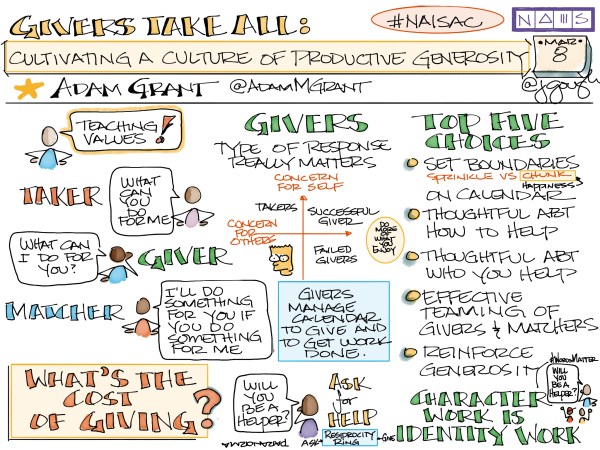 GIVERS TAKE ALL:
#NAISAC
CULTIVATING A CULTURE OF PRODUCTIVE GENEROSITY
•MAR•
8
ADAM GRANT @ADAMMGRANT
@jgough
TEACHING
VALUES!
TAKER
WHAT
CAN
YOU
DO
FOR ME
WHAT CAN
I DO FOR
YOU?
GIVER
MATCHER
I'LL DO
SOMETHING
FOR YOU IF
YOU DO
SOMETHING
FOR ME.
WHAT'S THE
COST
OF GIVING?
GIVERS
TYPE OF RESPONSE
REALLY MATTERS
CONCERN
FOR SELF
TAKERS
SUCCESSFUL
GIVER
CONCERN
FOR
OTHERS
FAILED
GIVERS
DO
MORE
OF
WHAT
YOU
ENJOY
GIVERS
MANAGE
CALENDAR
TO GIVE AND
TO GET WORK
DONE.
WILL
YOU
BE A
HELPER?
ASK
for
HELP
ASK
RECIPROCITY
RING
GIVE
TOP FIVE
CHOICES
SET BOUNDARIES
SPRINKLE VS CHUNK
HAPPINESS
ON CALENDAR
THOUGHTFUL ABT
HOW TO HELP
THOUGHTFUL ABT
WHO YOU HELP
EFFECTIVE
TEAMING OF
GIVERS & MATCHERS
REINFORCE
GENEROSITY
#WORDSMATTER
WILL
YOU
BE A
HELPER?
CHARACTER
WORK IS
IDENTITY WORK